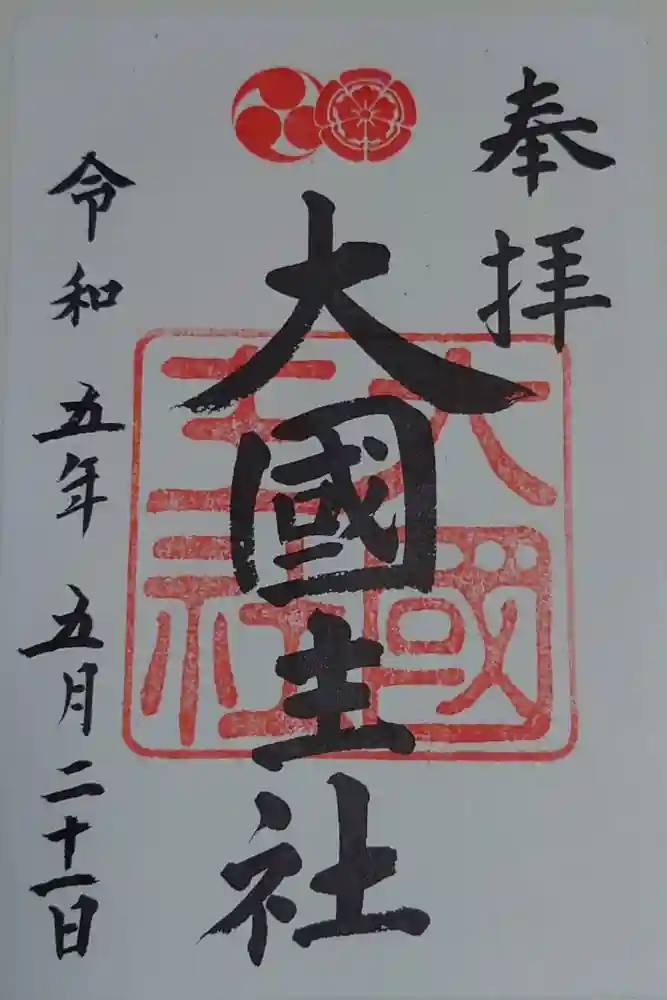 奉拝
大國主社
大國主社
令和五年五月二十一日